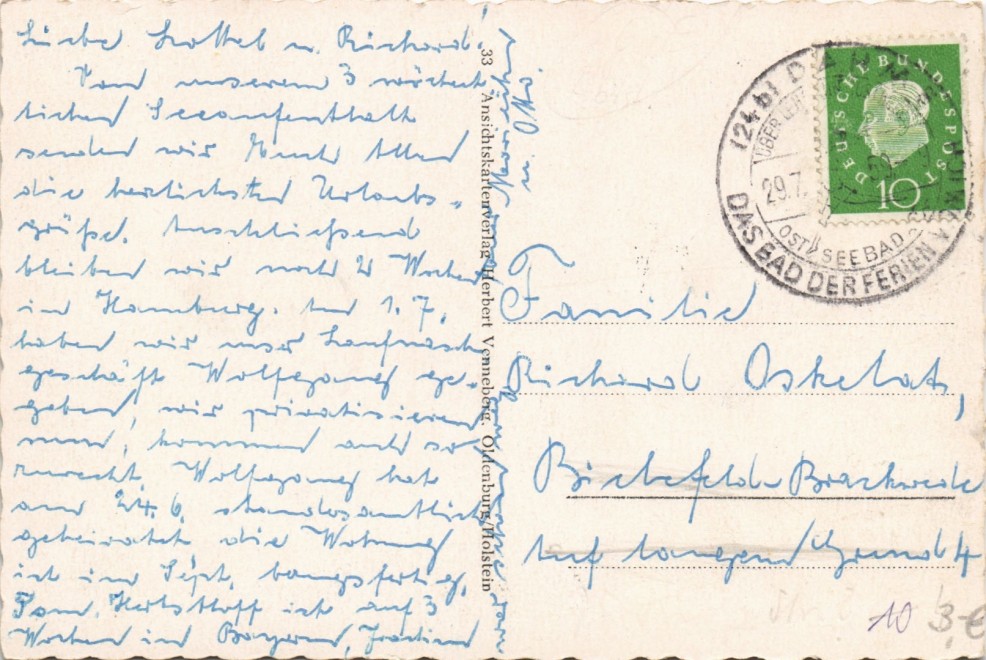 Liebe Lottel u. Richard.
Von unserem 3 wöchent
lichen Seeaufenthalt
senden wir Euch Allen
die herzlichsten Urlaubs-
grüße. Anschließend
bleiben wir noch 2 Wochen
in Hamburg. Am 1.7.
haben wir unser
geschäft Wolfgang ge-
geben, wir privatisieren
nun, kommen auch so
zurecht. Wolfgang hat
am 24.6. standesamtlich
geheiratet die Wohnung
ist im Sept. bezugsfertig.
Fam. ist auf 3
Wochen in Bayern,
33 Ansichtskartenverlag Herbert Venneberg, Oldenburg/Holstein
(24b) DAHME
29.7.
OSTSEEBAD
DAS BAD DER FERIEN
DEUTSCHE BUNDESPOST
10
Familie
Richard Oskelatz,
Bielefeld-Brackwede
Auf langen Grund 4
10
3-€